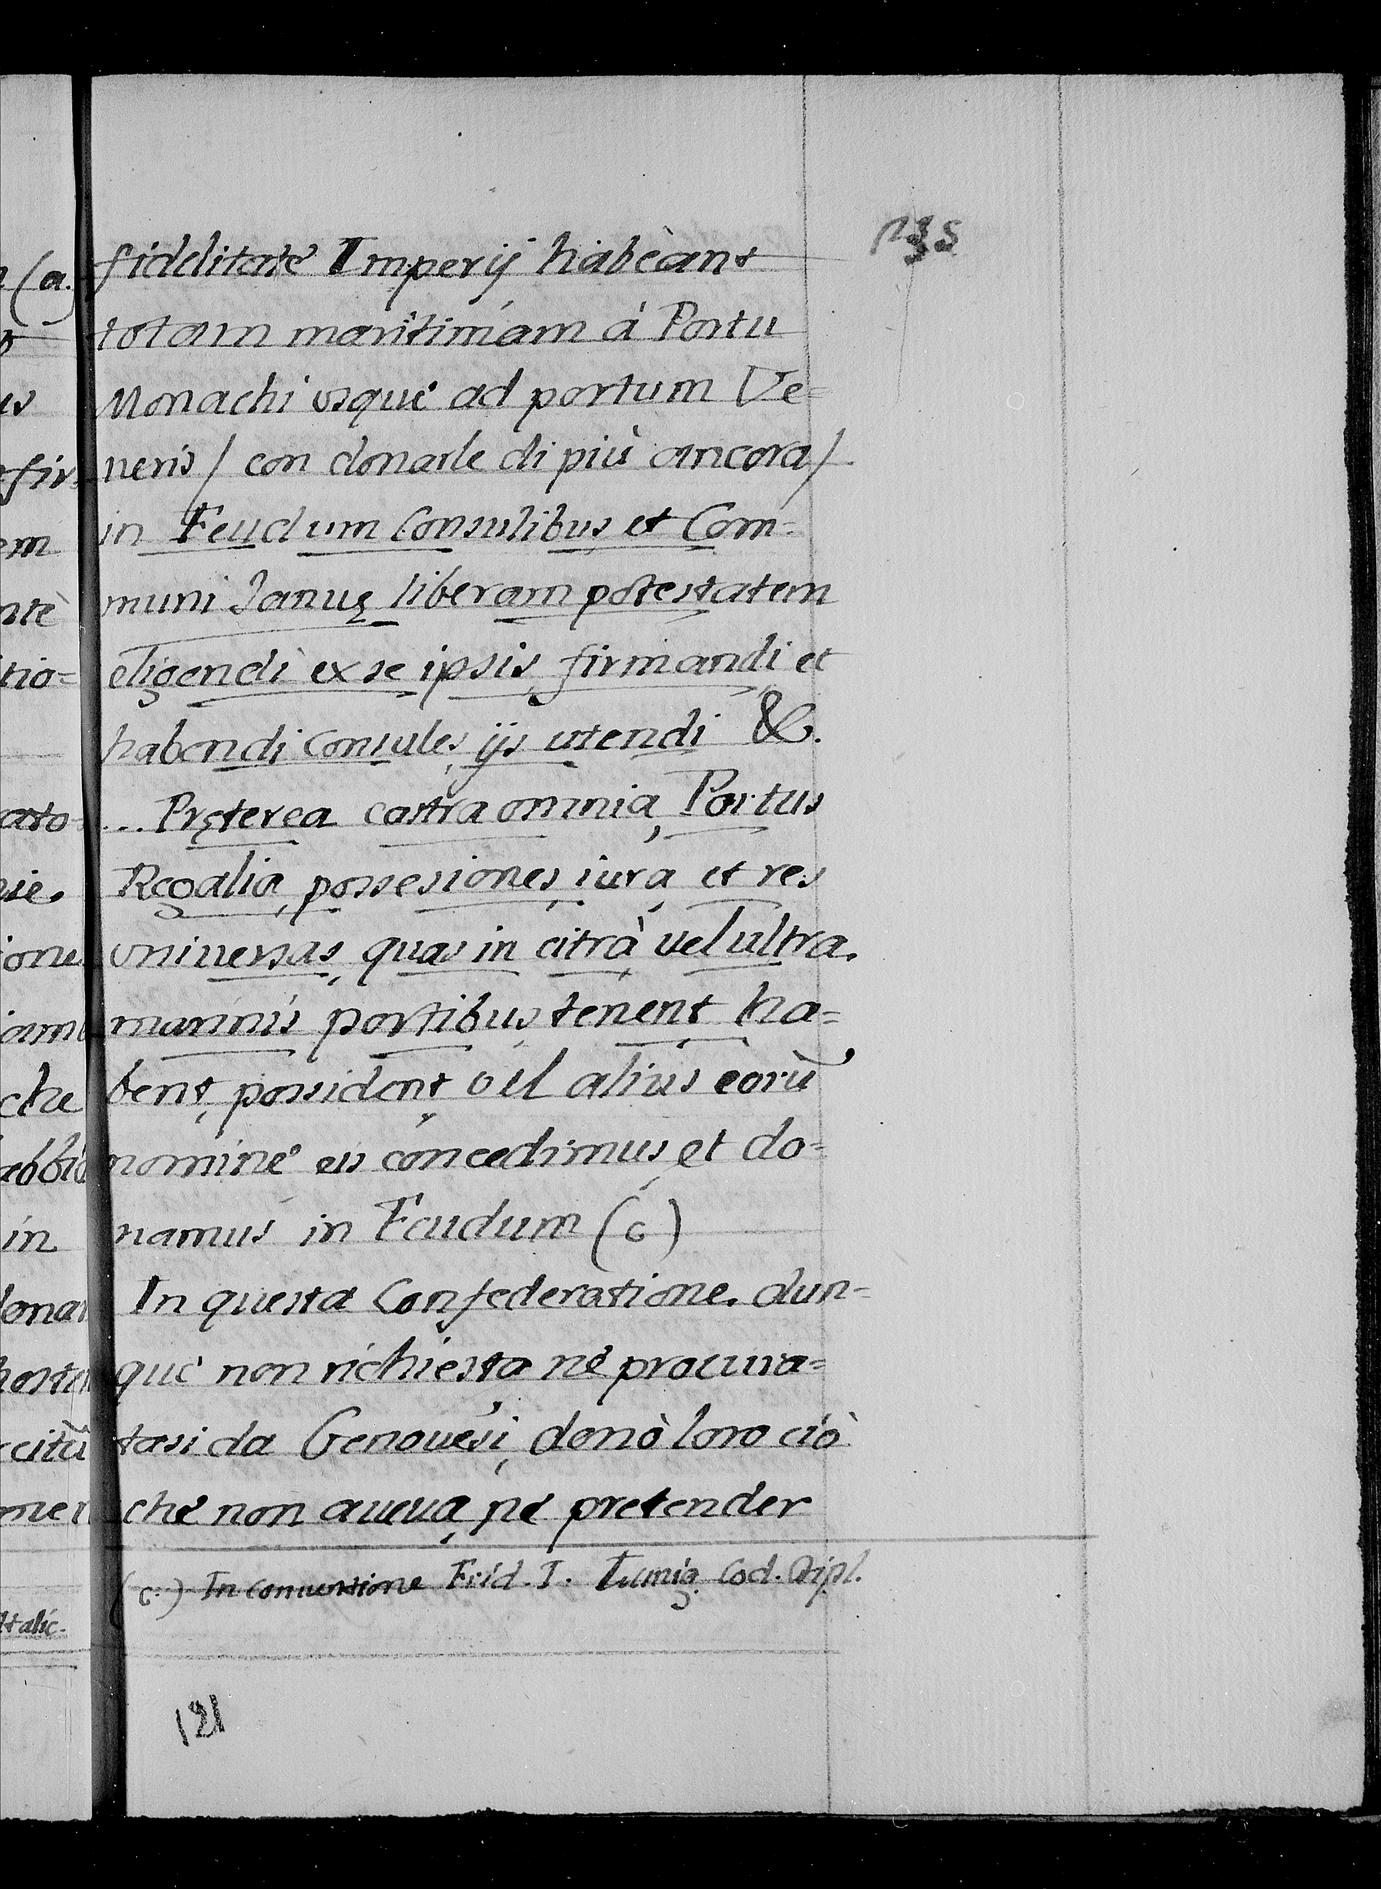 fidelitate Imperij habeant
totam maritimam à Portu
Monachi usque ad portum Ve=
neris / con donarle di più ancora /
in Feudum Consulibus et Com=
muni Ianuę liberam potestatem
eligendi ex se ipsis, firmandi et
habendi Consules, ijs utendi &.
... Pręterea castra omnia, Portus
Regalia, possesiones, iura, et res
universas, quas in citrà vel ultra.
marinis portibus, tenent ha=
bent, possident, vel alius eorũ
nomine eis concedimus, et do=
namus in Feudum (c)
In questa Confederatione. dun=
que non richiesta nè procura=
tasi da Genovesi, donò loro ciò
che non aveva, ne pretender
(c.) In conventione Frid. I. Lunig. Cod. Dipl.
121